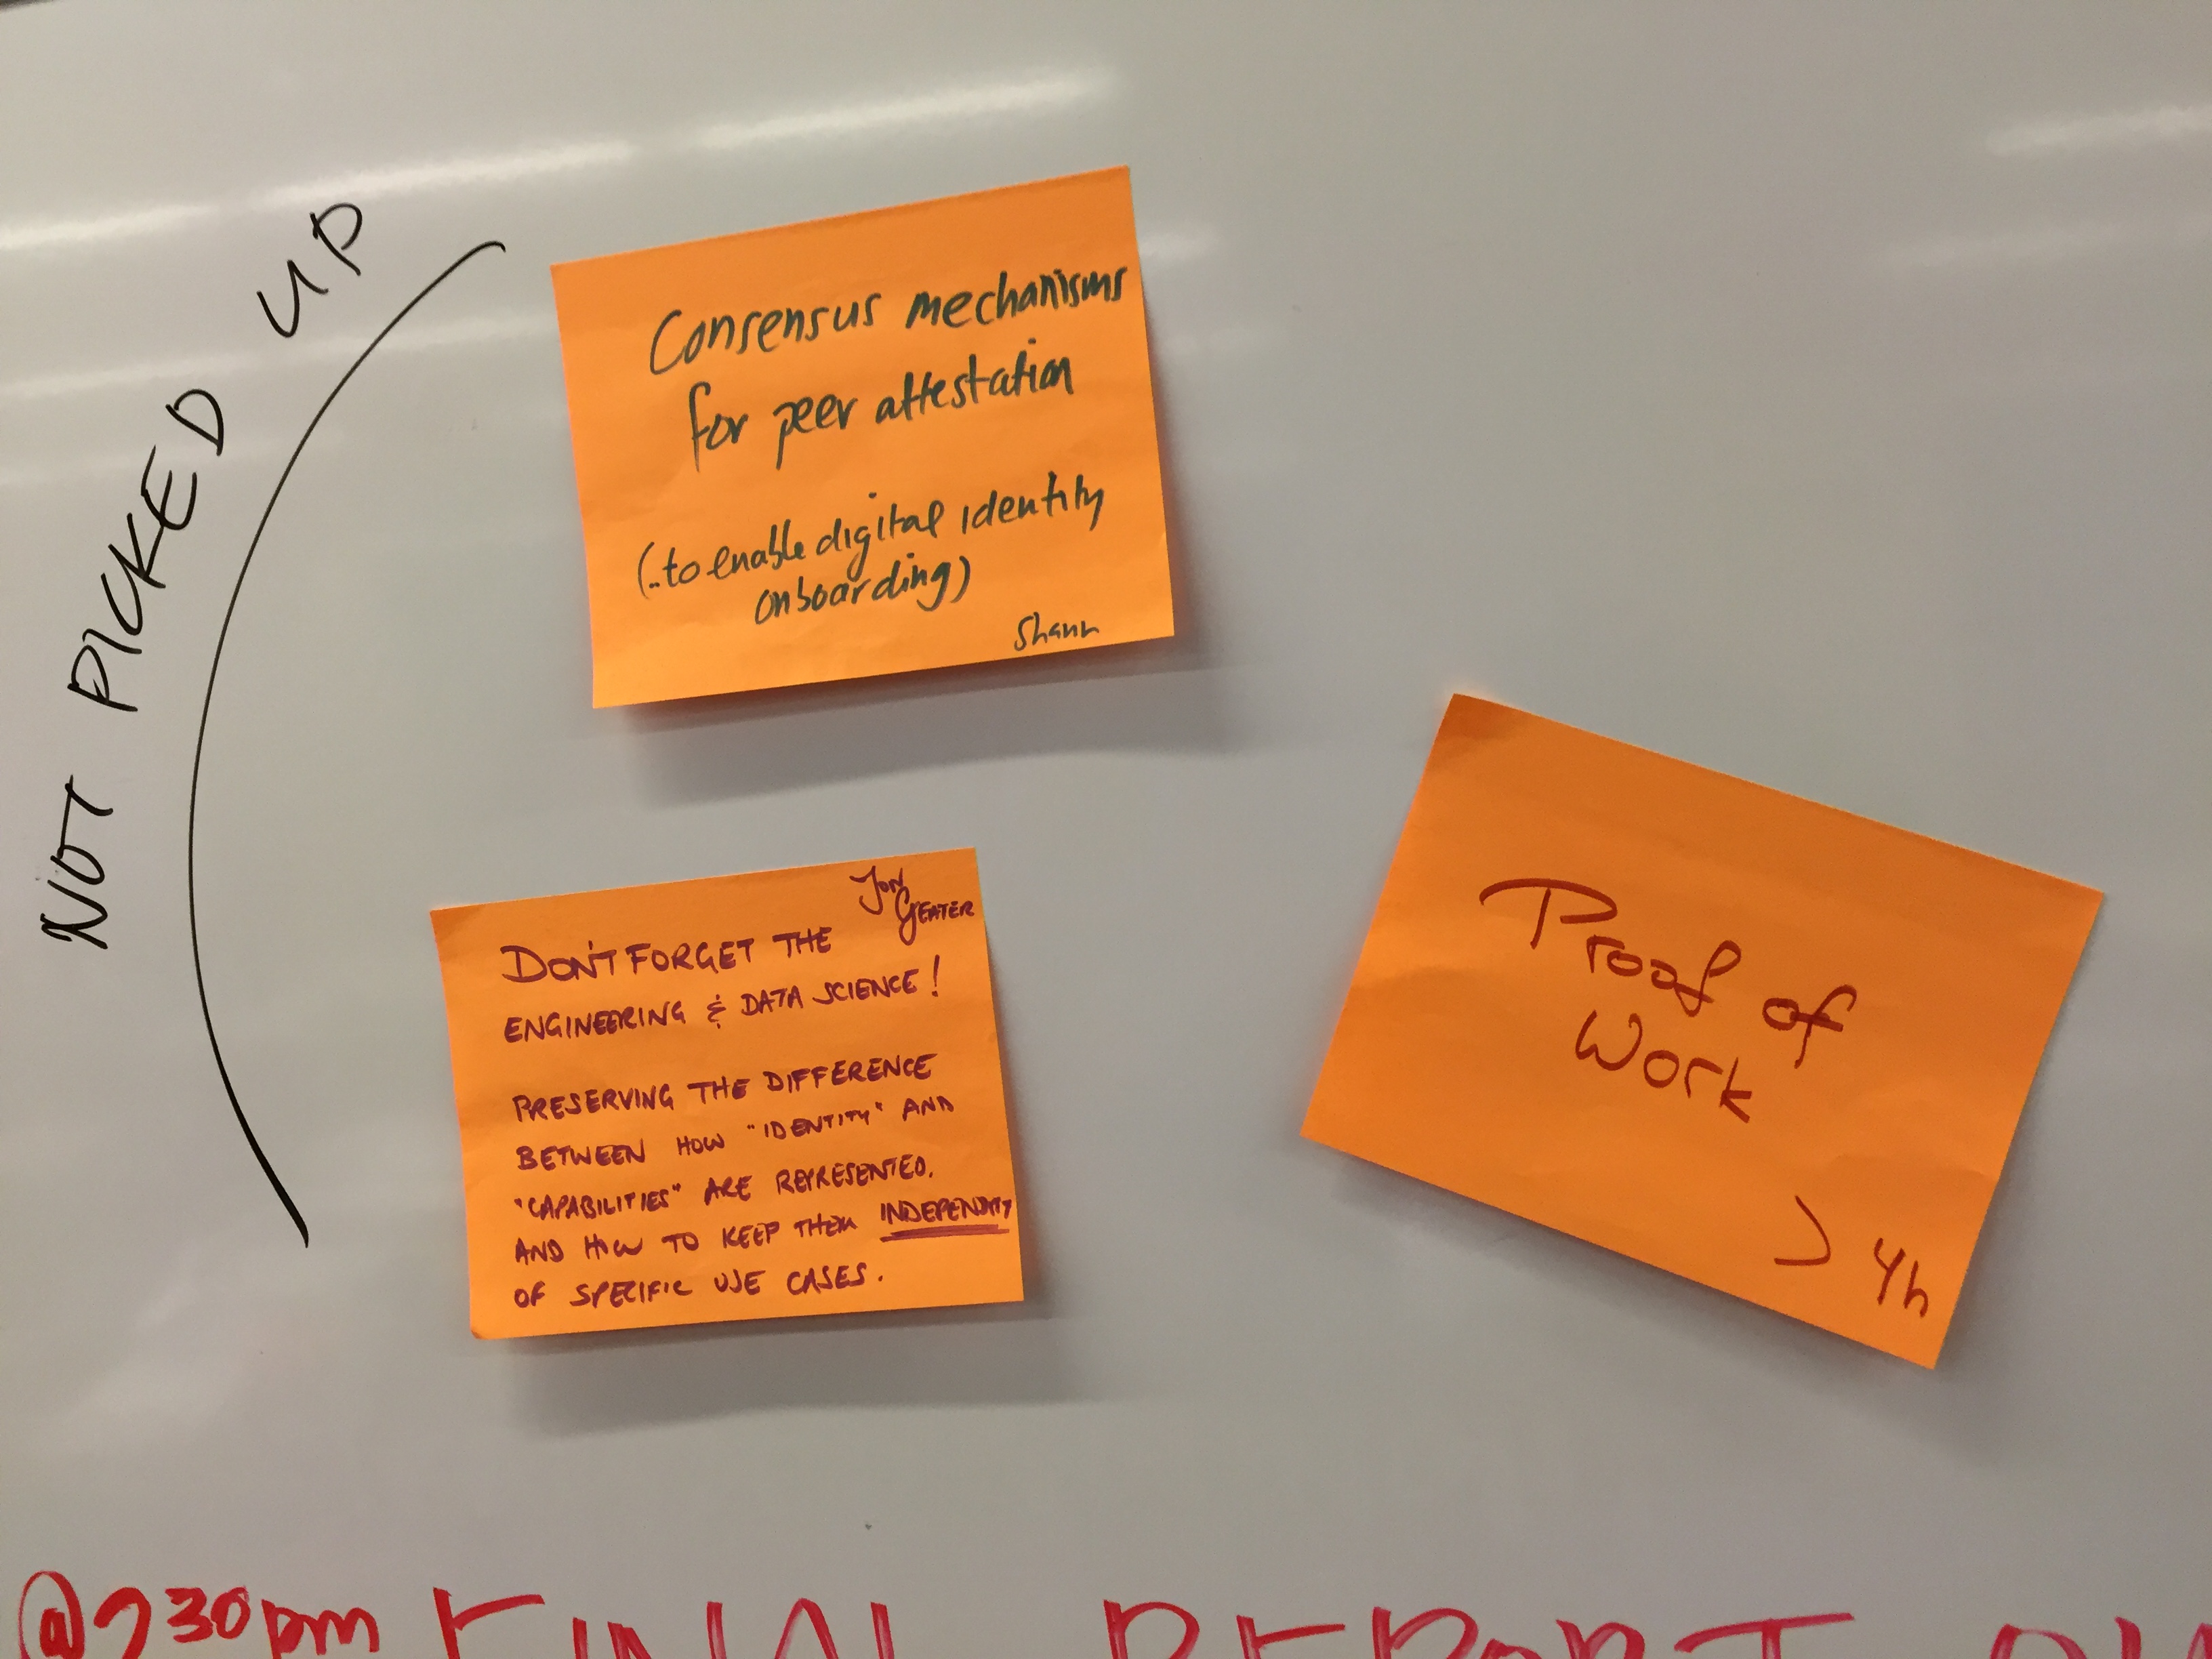 NOT PICKED UP
Consensus mechanisms
for peer attestation
(..to enable digital identity
onboarding)
Shann
Jon
Geater
DON'T FORGET THE
ENGINEERING & DATA SCIENCE!
PRESERVING THE DIFFERENCE
BETWEEN HOW "IDENTITY" AND
"CAPABILITIES" ARE REPRESENTED.
AND HOW TO KEEP THEM
OF SPECIFIC USE CASES.
Proof of
Work
> 4h
@230pm FINAL REPORT